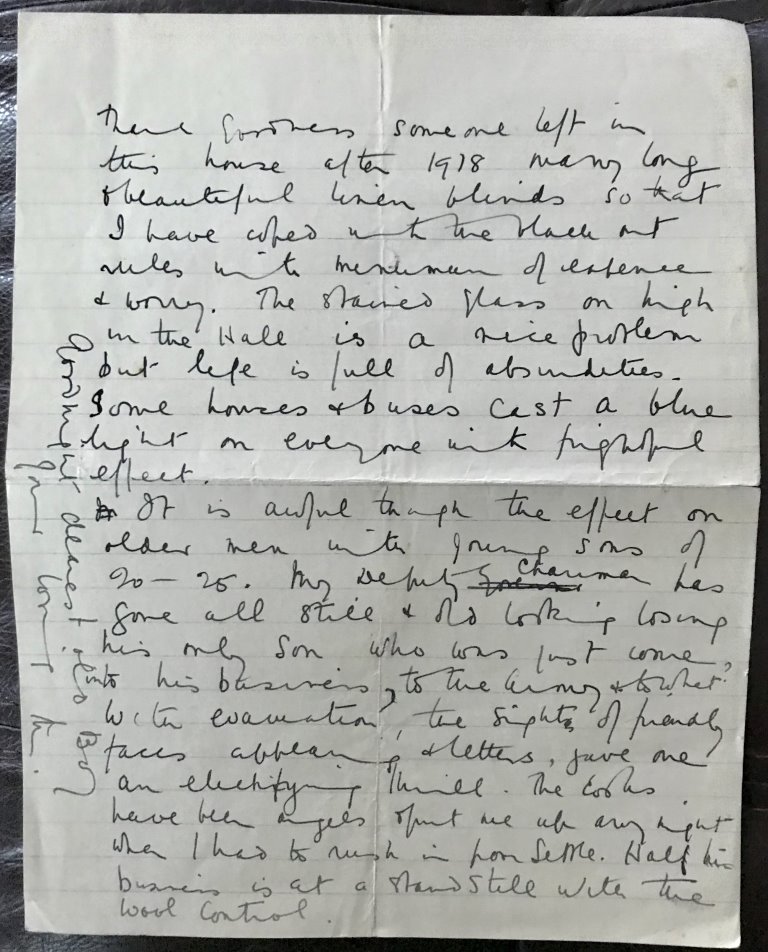 Thank Goodness someone left in
this house after 1918 many long
& beautiful linen blinds so that
I have coped with the black out
rules with minimum of expense
& worry. The stained glass on high
in the Hall is a nice problem
but life is full of absurdities.
Some houses & buses cast a blue
light on everyone with frightful
effect.
It is awful though the effect on
older men with young sons of
20-25. My Deputy Chairman has
gone all still & old looking losing
his only son who was just come,
into his business, to the Army & to what?
With evacuation, the sights of friendly
faces appearing & letters, gave one
an electrifying thrill. The Cooks
have been angels & put me up any night
when I had to rush in from Settle. Half his
business is at a standstill with the
Wool Control.
Goodnight dearest old Boy